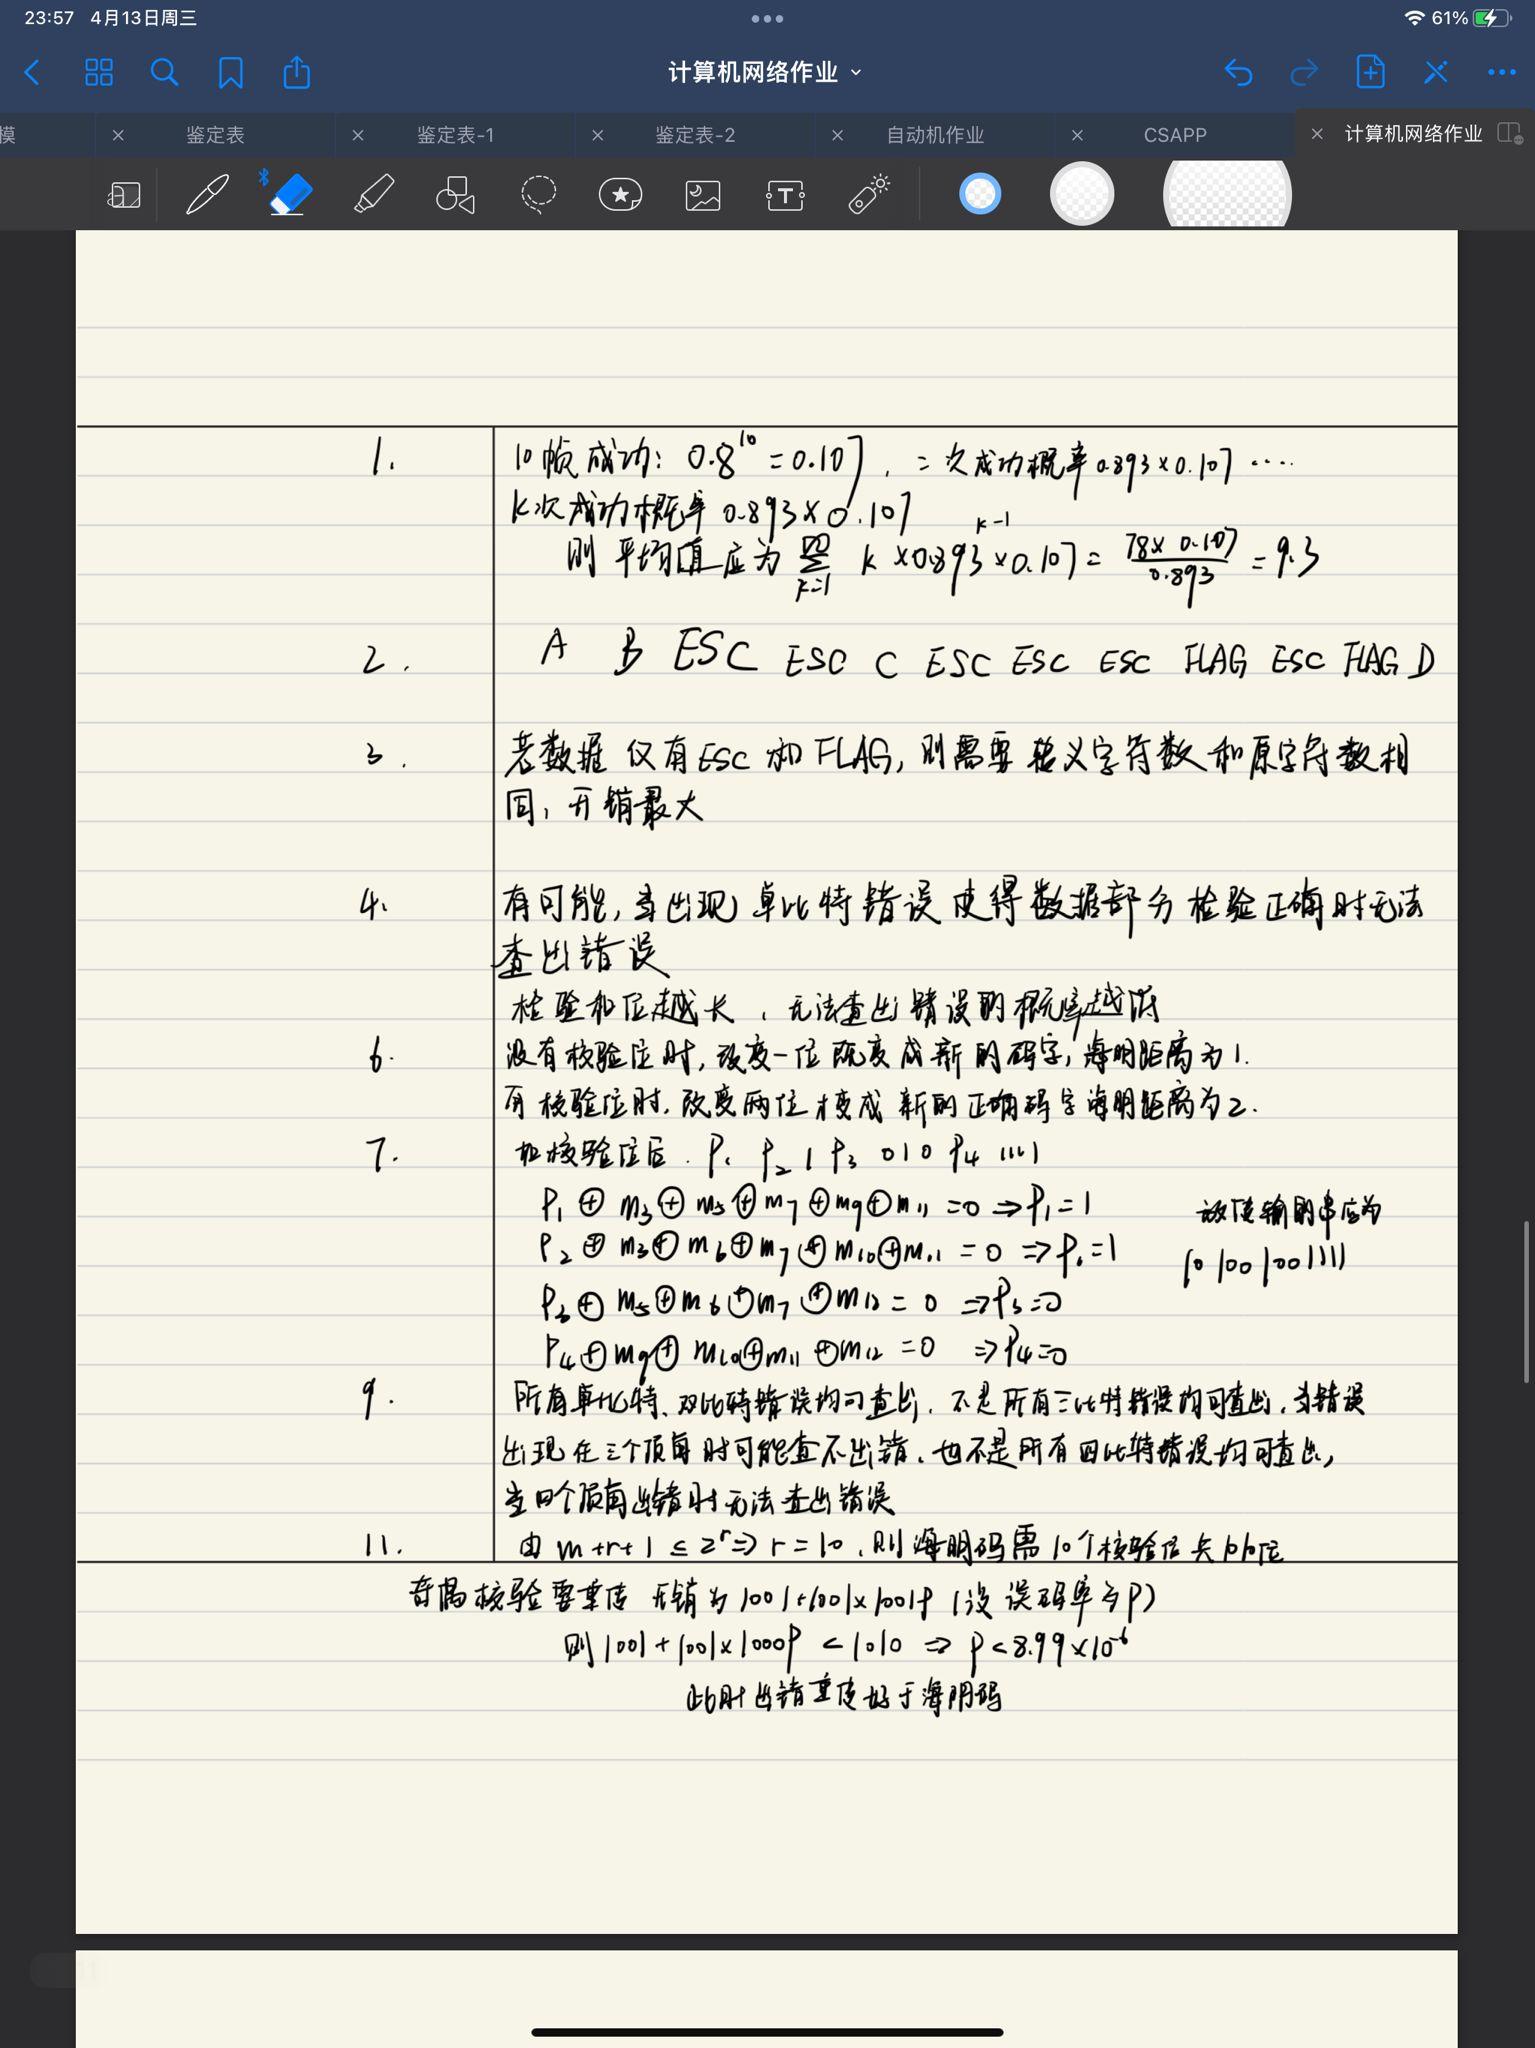 23:57 4月13日周三
61%
计算机网络作业
模
鉴定表
鉴定表-1
鉴定表-2
自动机作业
CSAPP
计算机网络作业
1. 10帧成功: 0.8^10 = 0.107, 二次成功概率0.893×0.107 ....
K次成功概率 0.893×0.107
k-1
则平均值应为 ∞∑k=1 k×0.893×0.107 = 78×0.107/0.893 = 9.3
2. A B ESC ESC C ESC ESC ESC FLAG ESC FLAG D
3. 若数据仅有ESC和FLAG, 则需要转义字符数和原字符数相
同, 开销最大
4. 有可能, 当出现单比特错误使得数据部分检验正确时无法
查出错误
检验和位越长, 无法查出错误的概率越
6. 没有校验位时, 改变一位既变成新的码字, 海明距离为1.
有校验位时, 改变两位才变成新的正确码字海明距离为2.
7. 加校验位后. P1 P2 1 P3 010 P4 1111
P1⊕m3⊕m5⊕m7⊕m9⊕m11=0⇒P1=1
故传输的串应为
P2⊕m3⊕m6⊕m7⊕m10⊕m11=0⇒ =1
101001001111
P3⊕m5⊕m6⊕m7⊕m12=0⇒P3=0
P4⊕m9⊕m10⊕m11⊕m12=0⇒P4=0
9. 所有单比特、双比特错误均可查出, 不是所有三比特错误均可查出, 当错误
出现在三个顶角时可能查不出错, 也不是所有四比特错误均可查出,
当四个顶角出错时无法查出错误
11. 由m+r+1≤2^r⇒r=10, 则海明码需10个校验位共1010位
奇偶校验要重传 开销为1001+1001×1001P (设误码率为P)
则1001+1001×1000P<1010⇒P<8.99×10^-6
此时出错重传好于海明码